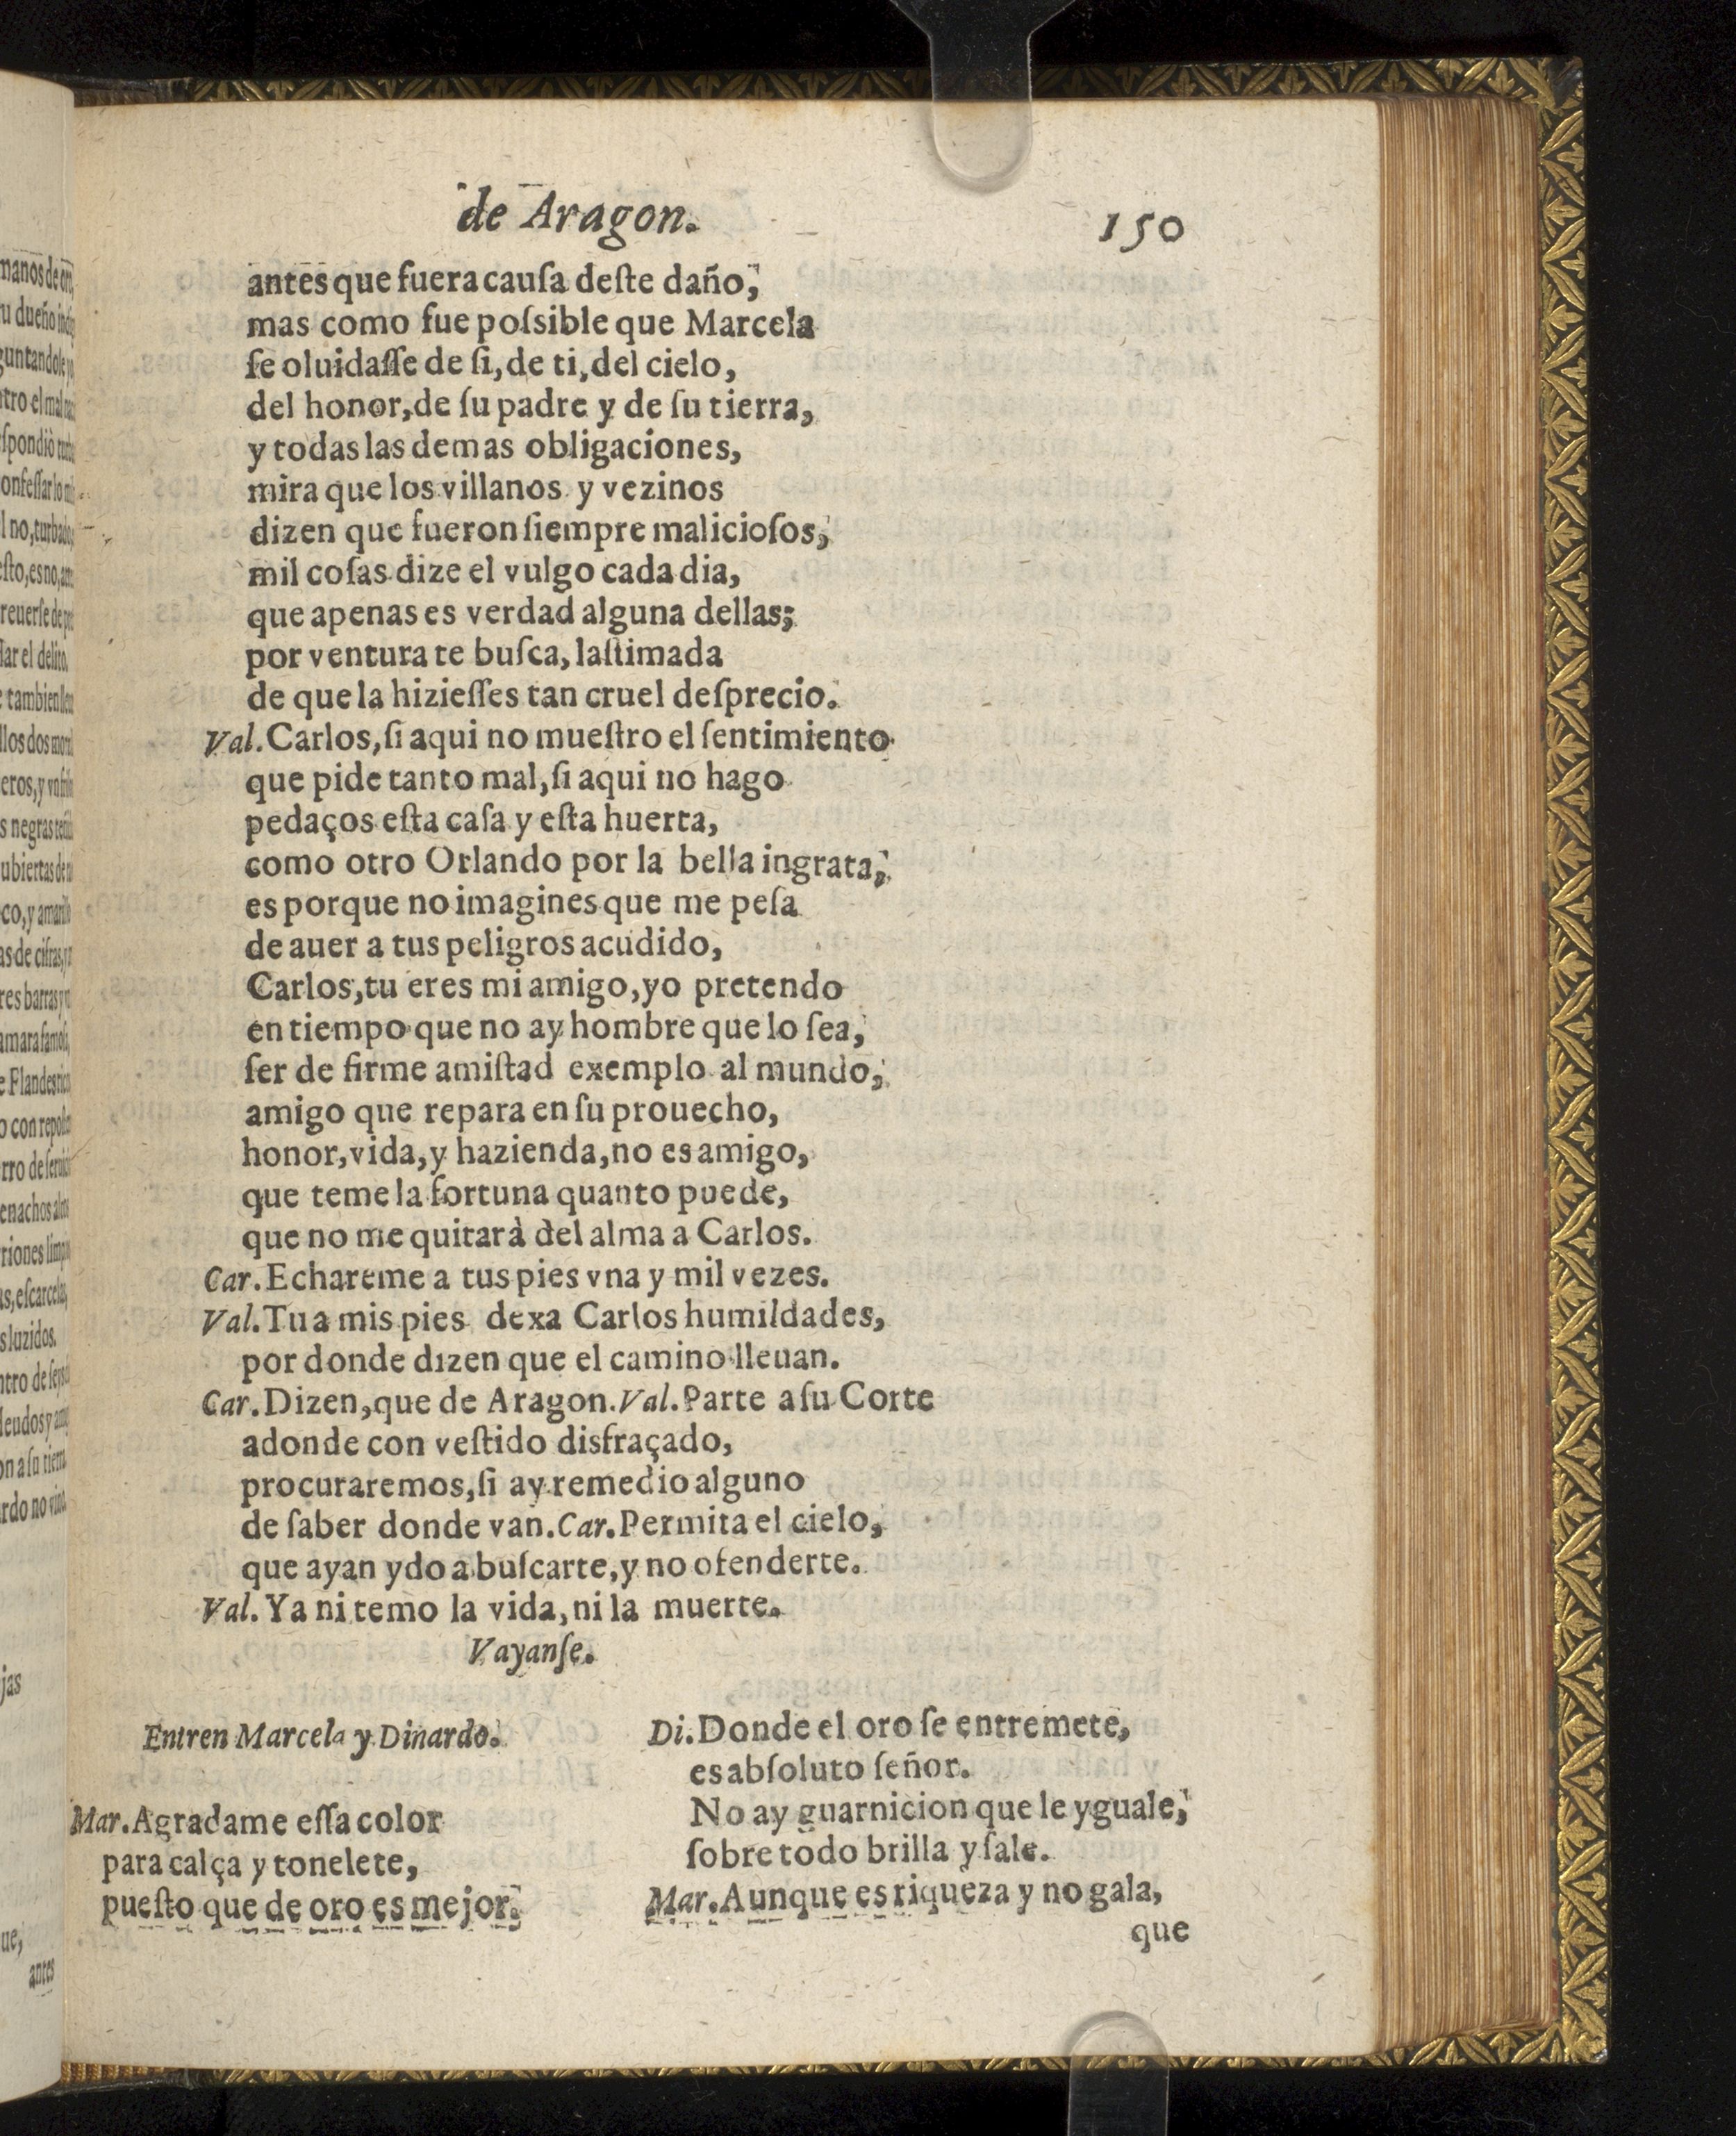 de Aragon. 150
antes que fuera cauſa deſte daño,
mas como fue poſsible que Marcela
ſe oluidaſſe de ſi, de ti, del cielo,
del honor, de ſu padre y de ſu tierra,
y todas las demas obligaciones,
mira que los villanos y vezinos
dizen que fueron ſiempre malicioſos,
mil coſas dize el vulgo cada dia,
que apenas es verdad alguna dellas;
por ventura te buſca, laſtimada
de que la hizieſſes tan cruel deſprecio.
Val. Carlos, ſi aqui no mueſtro el ſentimiento
que pide tanto mal, ſi aqui no hago
pedaços eſta caſa y eſta huerta,
como otro Orlando por la bella ingrata,
es porque no imagines que me peſa
de auer a tus peligros acudido,
Carlos, tu eres mi amigo, yo pretendo
en tiempo que no ay hombre que lo ſea,
ſer de firme amiſtad exemplo al mundo,
amigo que repara en ſu prouecho,
honor, vida, y hazienda, no es amigo,
que teme la fortuna quanto puede,
que no me quitarà del alma a Carlos.
Car. Echareme a tus pies vna y mil vezes.
Val. Tu a mis pies dexa Carlos humildades,
por donde dizen que el camino lleuan.
Car. Dizen, que de Aragon. Val. Parte a ſu Corte
adonde con veſtido disfraçado,
procuraremos, ſi ay remedio alguno
de ſaber donde van. Car. Permita el cielo,
que ayan ydo a buſcarte, y no ofenderte.
Val. Ya ni temo la vida, ni la muerte.
Vayanſe.
Entren Marcela y Dinardo.
Mar. Agradame eſſa color
para calça y tonelete,
pueſto que de oro es mejor.
Di. Donde el oro ſe entremete,
es abſoluto ſeñor.
No ay guarnicion que le yguale,
ſobre todo brilla y ſale.
Mar. Aunque es riqueza y no gala,
que